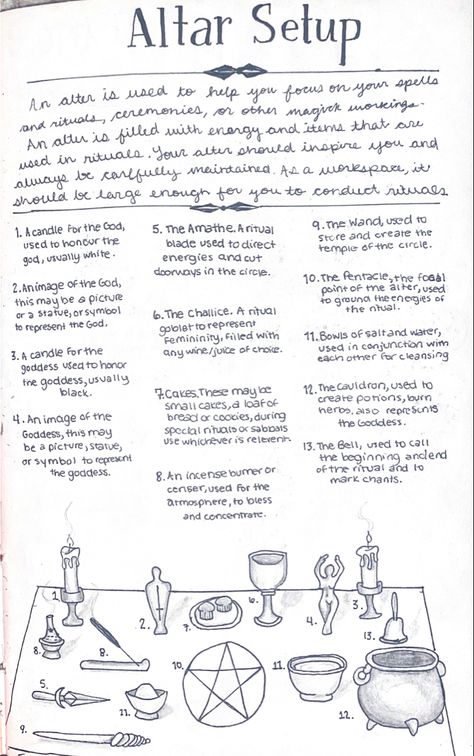 Altar Setup
An alter is used to help you focus on your spells
and rituals, ceremonies, or other magick workings.
An alter is filled with energy and items that are
used in rituals. Your alter should inspire you and
always be carfully meintained. As a workspace, it
should be large enough for you to conduct rituals
1. A candle for the God,
used to honour the
god, usually white.
2. An image of the God,
this may be a picture
or a statue, or symbol
to represent the God.
3. A candle for the
goddess used to honor
the goddess, usually
black.
4. An image of the
Goddess, this may
be a picture, statue,
or symbol to represent
the goddess.
5. The Amathe. A ritual
blade used to direct
energies and cut
doorways in the circle.
6. The Challice. A ritual
goblet to represent
femininity, filled with
any wine/juice of choice.
7. Cakes. These may be
small cakes, a loaf of
bread or cookies, during
special rituals or sabbats
use whichever is relevent.
8. An incense burner or
censer, used for the
atmosphere, to bless
and concentrate.
9. The Wand, used to
store and create the
temple of the circle.
10. The Pentacle, the focal
point of the alter, used
to ground the energies of
the ritual.
11. Bowls of salt and water,
used in conjunction with
each other for cleansing
12. The Cauldron, used to
create potions, burn
herbs, also represents
the Goddess.
13. The Bell, used to call
the beginning and end
of the ritual and to
mark chants.
1.
2.
7.
6.
4.
3.
13.
8.
8.
10.
11.
5.
11.
12.
9.